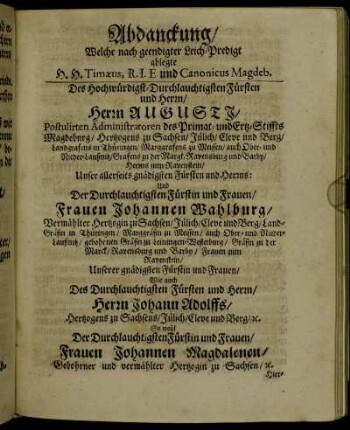 Abdanckung/
Welche nach geendigter Leich-Predigt
ablegte
H. H. Timæus, R. I. E und Canonicus Magdeb.
Des Hochwürdigst-Durchlauchtigsten Fürsten
und Herrn/
Herrn AUGUSTI/
Postulirten Administratoren des Primat- und Ertz-Stiffts
Magdeburg/ Hertzogens zu Sachsen/ Jülich/ Cleve und Berg/
Landgrafens in Thüringen/ Marggrafens zu Meissen/ auch Ober- und
Nieder-Laußnitz/ Grafens zu der Marck/ Ravensburg und Barby/
Herrns zum Ravenstein/
Unser allerseits gnädigsten Fürsten und Herrns:
Und
Der Durchlauchtigsten Fürstin und Frauen/
Frauen Johannen Wahlburg/
Vermählter Hertzogin zu Sachsen/ Jülich/ Cleve und Berg/ Land-
Gräfin in Thüringen/ Marggräfin zu Meissen/ auch Ober- und Nieder-
Laußnitz/ gebohrnen Gräfin zu Leiningen-Westerburg/ Gräfin zu der
Marck/ Ravensburg und Barby/ Frauen zum
Ravenstein/
Unserer gnädigsten Fürstin und Frauen/
Wie auch
Des Durchlauchtigsten Fürsten und Herrn/
Herrn Johann Adolffs/
Hertzogens zu Sachsens/ Jülich/ Cleve und Berg/ ꝛc.
So wohl
Der Durchlauchtigsten Fürstin und Frauen/
Frauen Johannen Magdalenen/
Gebohrner und vermählter Hertzogin zu Sachsen/ ꝛc.
Hier-